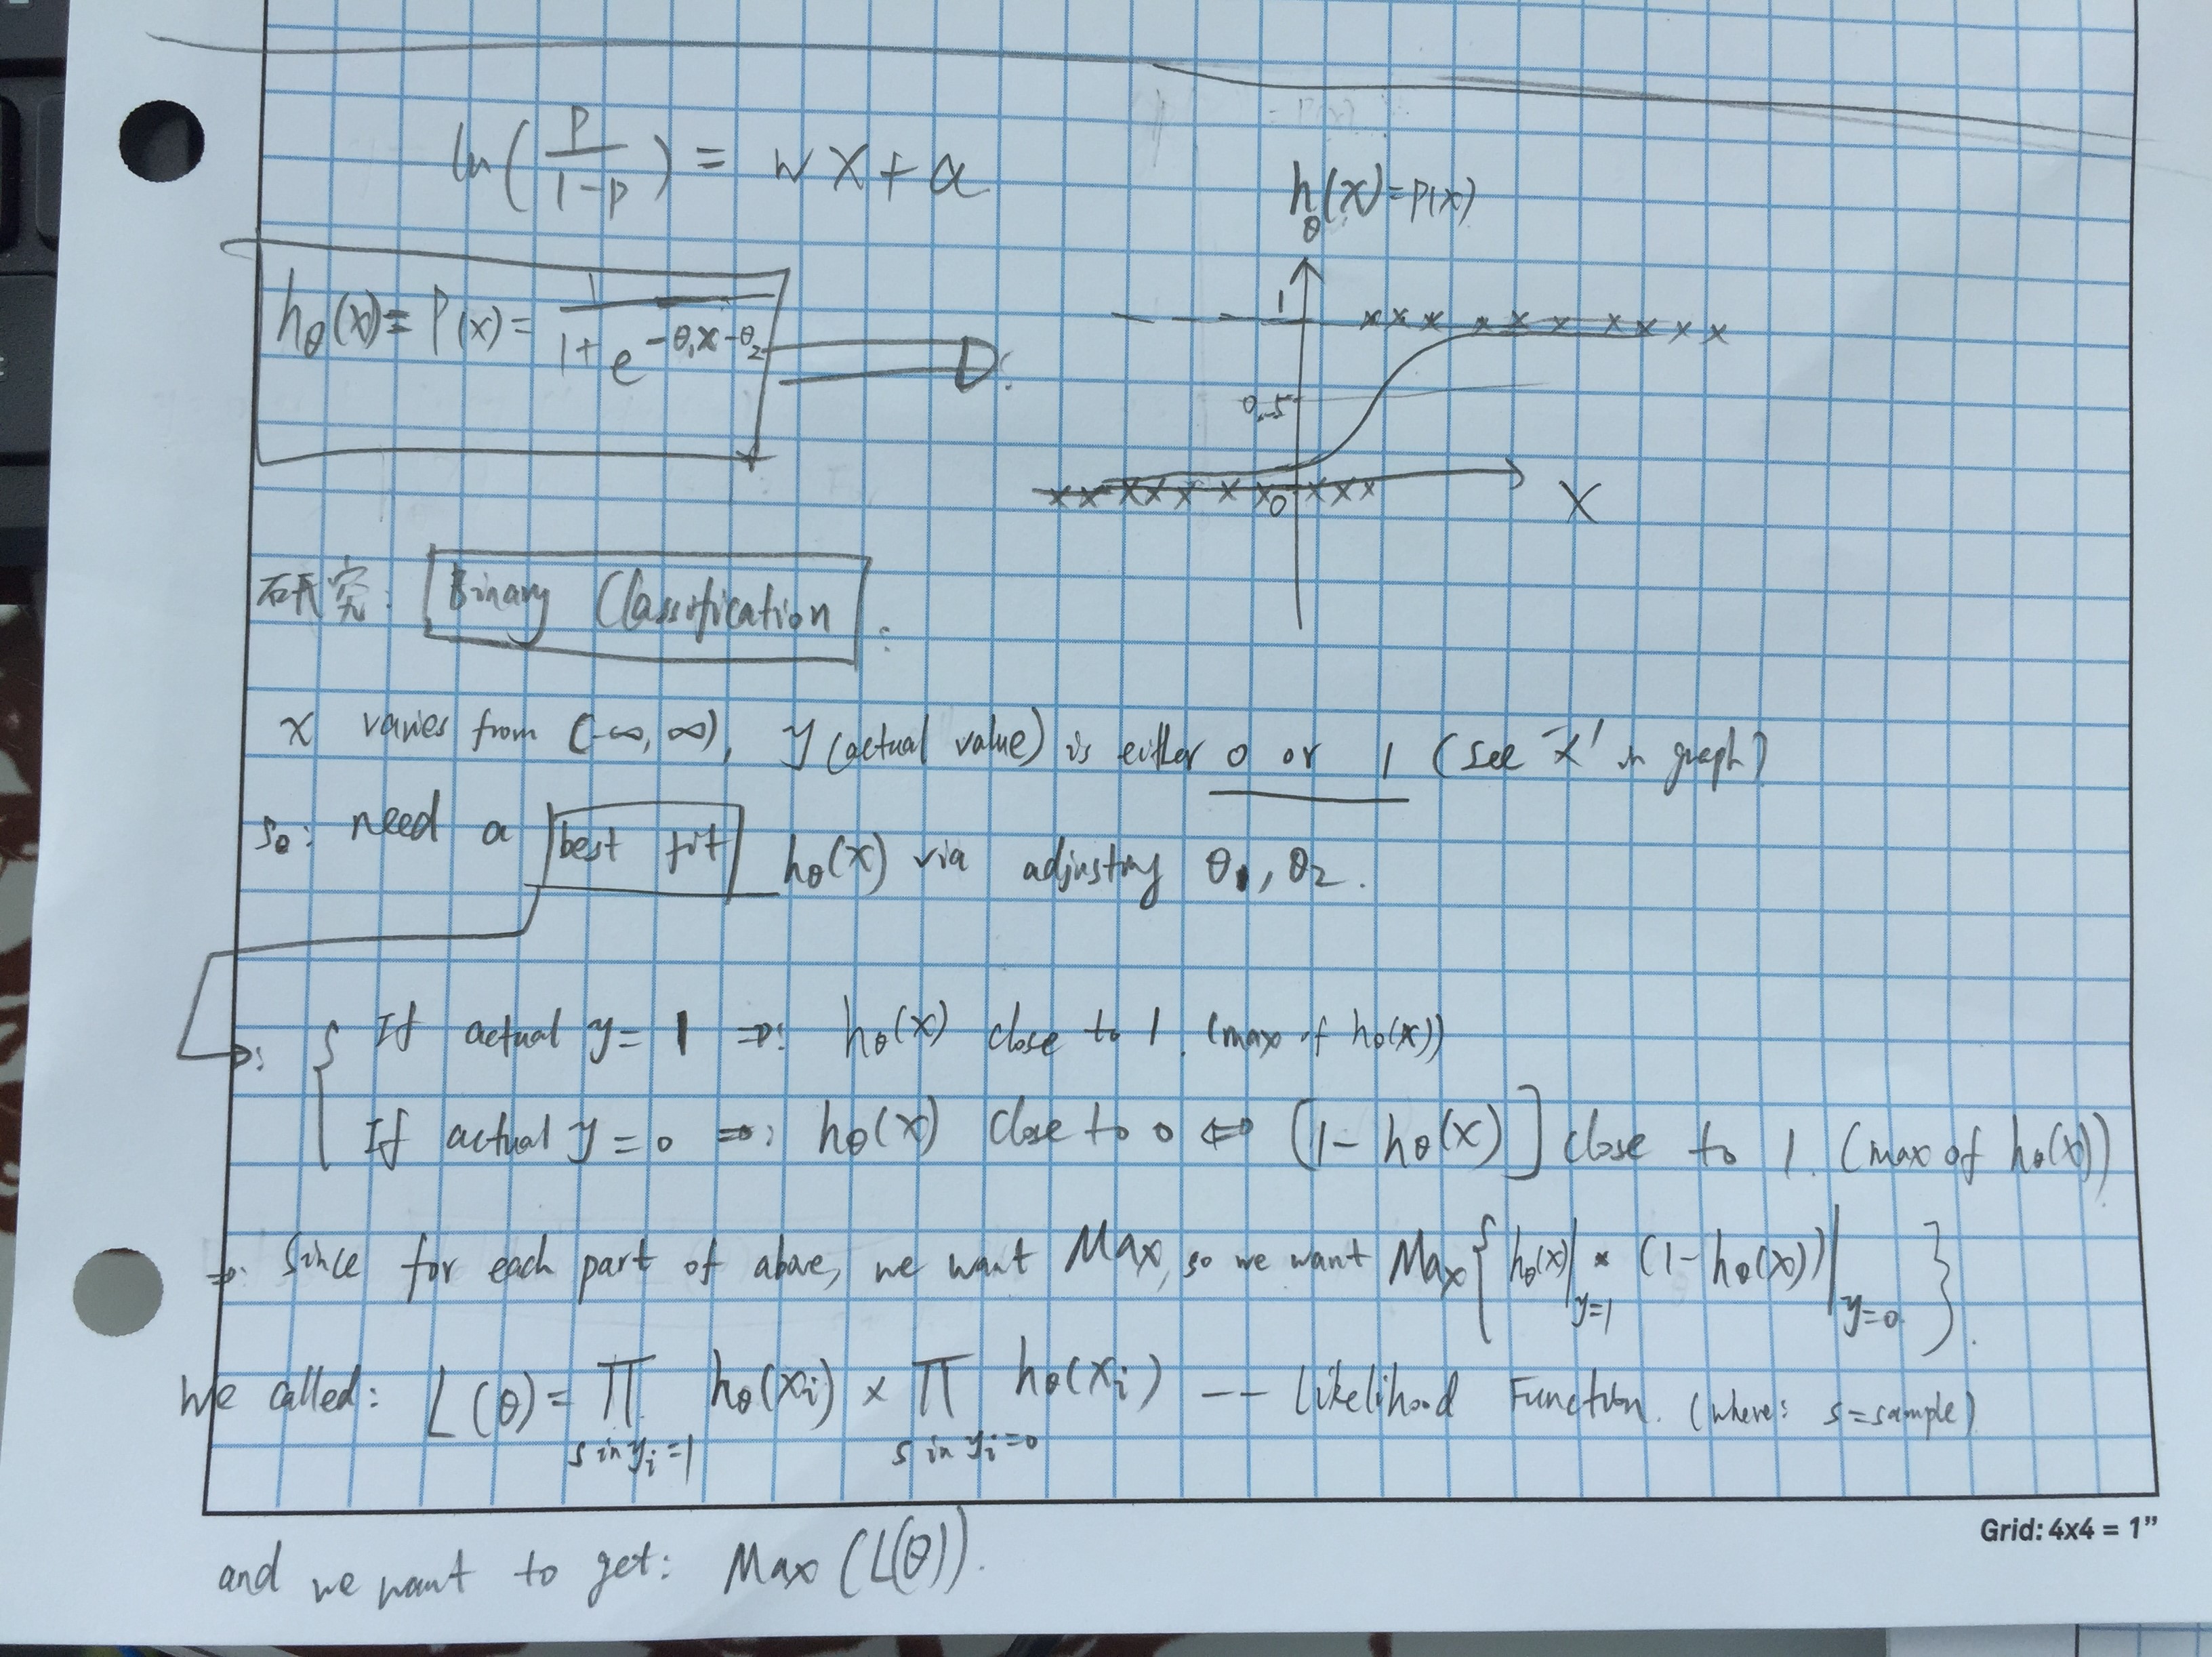 ln(P/(1-P)) = wX + α
h_θ(x) = P(x)
h_θ(x) = P(x) = 1/(1 + e^(-θ₁x - θ₂))
1
0.5
0
X
研究: Binary Classification :
x varies from (-∞, ∞), y (actual value) is either 0 or 1 (see 'x' in graph)
so: need a best fit h_θ(x) via adjusting θ₁, θ₂.
If actual y = 1 ⇒: h_θ(x) close to 1. (max of h_θ(x))
If actual y = 0 ⇒: h_θ(x) close to 0 ⇔ [1 - h_θ(x)] close to 1. (max of h_θ(x))
⇒: Since for each part of above, we want Max, so we want Max{ h_θ(x)|y=1 * (1 - h_θ(x))|y=0 }.
We called: L(θ) = ∏ s in yᵢ=1 h_θ(xᵢ) × ∏ s in yᵢ=0 h_θ(xᵢ) -- Likelihood Function. (where: s = sample)
Grid: 4x4 = 1”
and we want to get: Max (L(θ)).